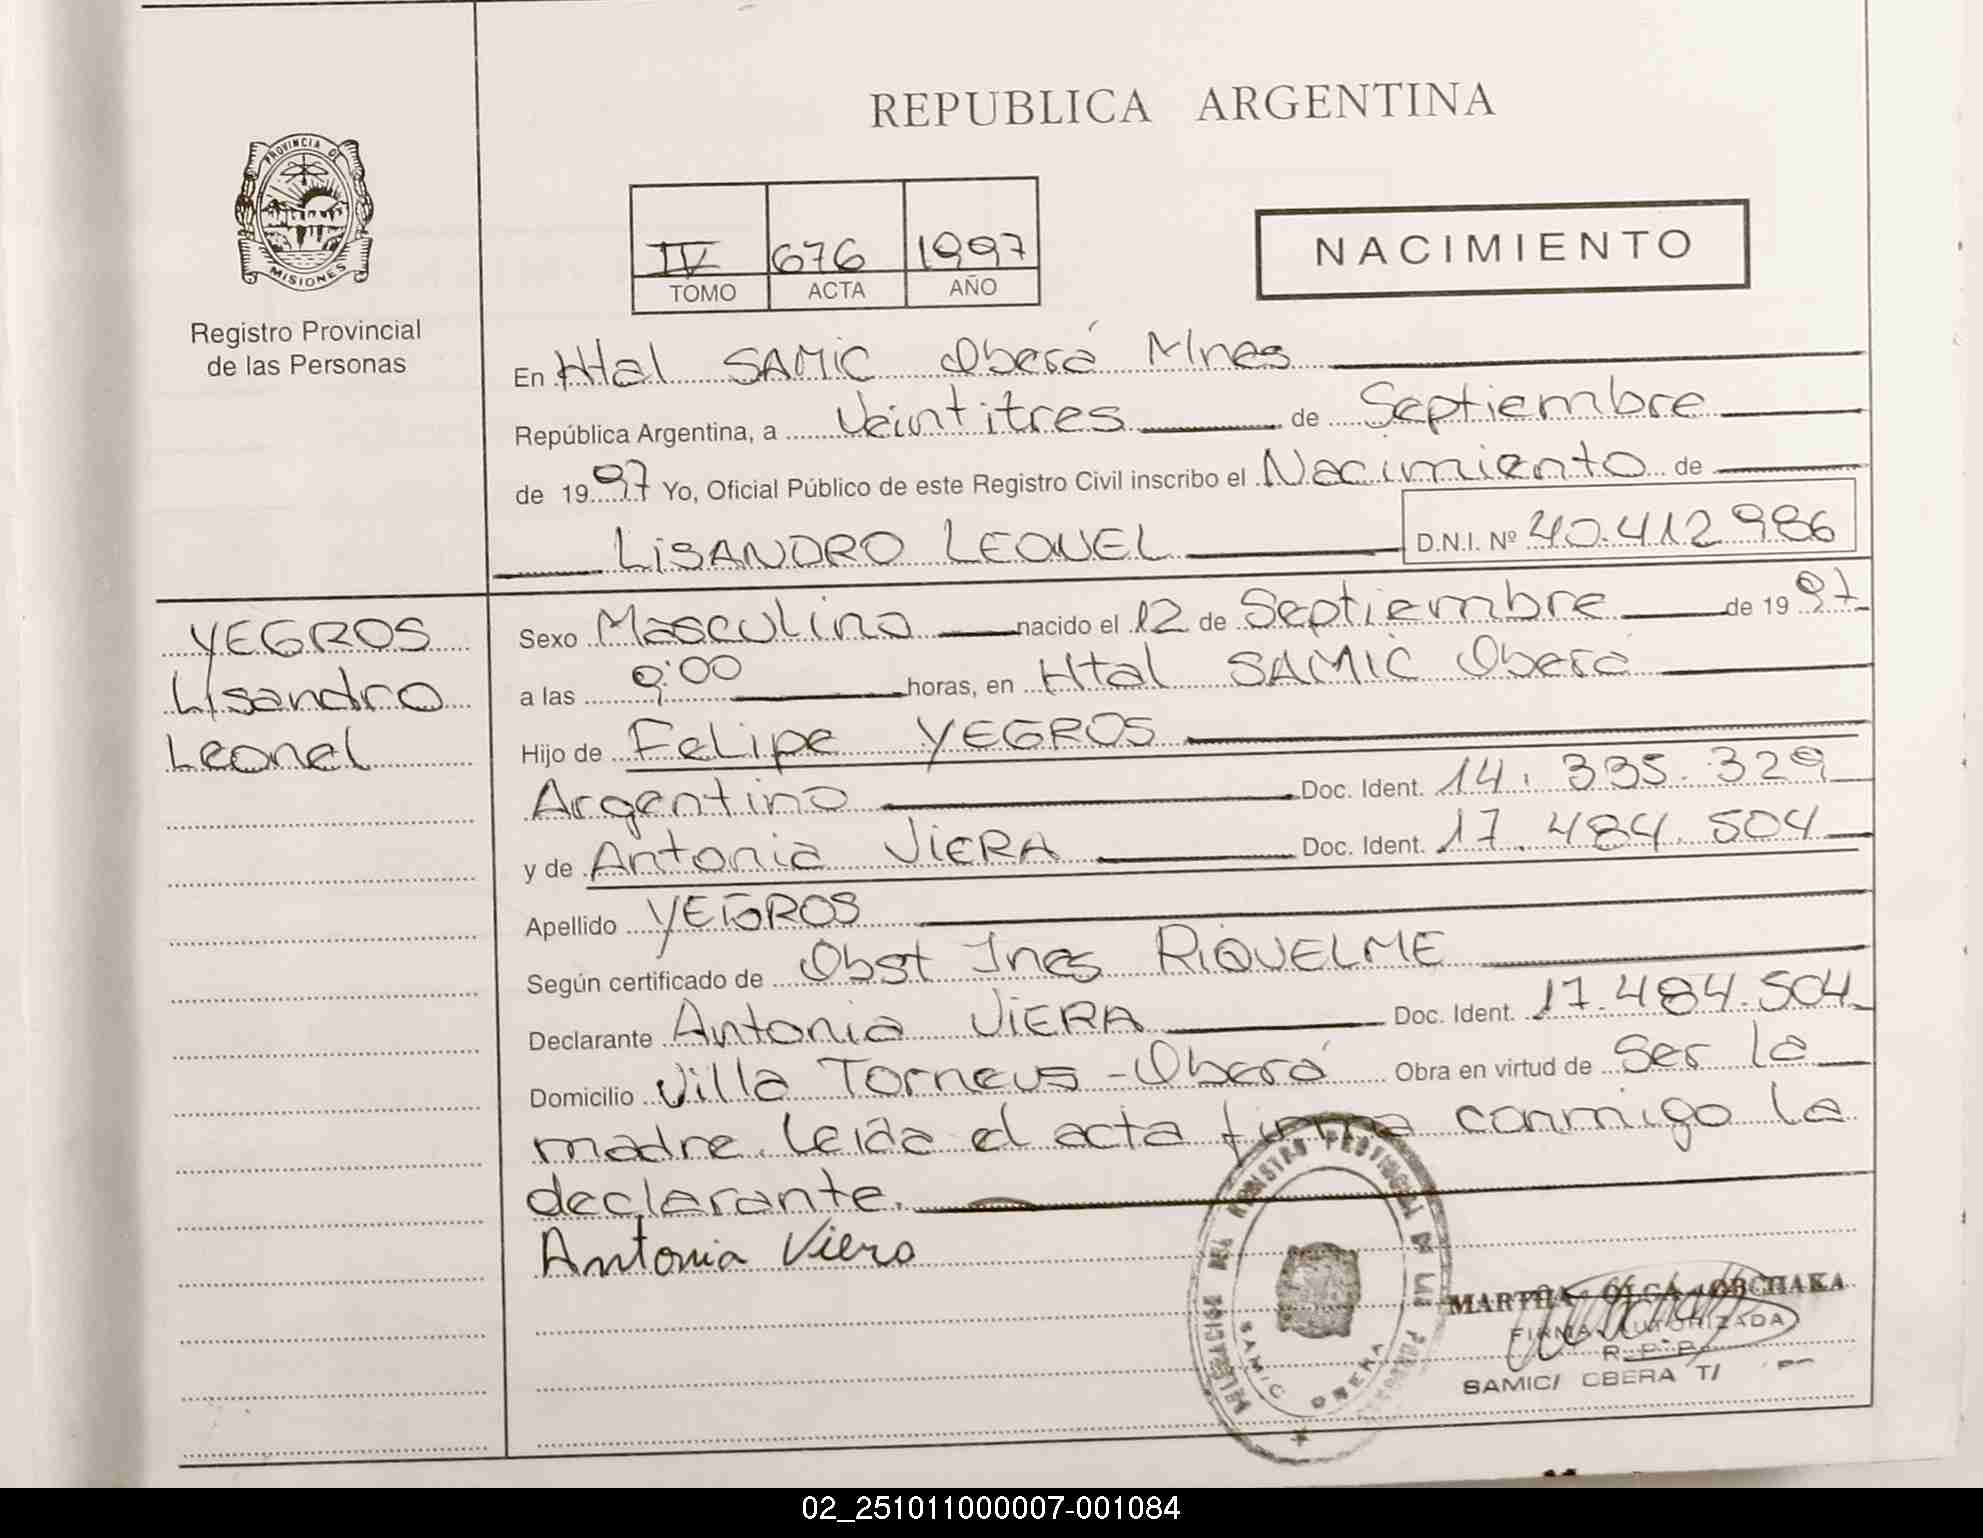 REPUBLICA ARGENTINA
PROVINCIA DE
MISIONES
Registro Provincial
de las Personas
IV 676 1997
TOMO ACTA AÑO
NACIMIENTO
En Htal SAMIC Oberá Mnes
República Argentina, a Veintitres de Septiembre
de 1997 Yo, Oficial Público de este Registro Civil inscribo el Nacimiento de
LISANDRO LEONEL D.N.I. Nº 40.412.986
YEGROS
Lisandro
Leonel
Sexo Masculino nacido el 12 de Septiembre de 1997
a las 9:00 horas, en Htal SAMIC Oberá
Hijo de Felipe YEGROS
Argentino Doc. Ident. 14.335.329
y de Antonia VIERA Doc. Ident. 17.484.504
Apellido YEGROS
Según certificado de Obst Ines RIQUELME
Declarante Antonia VIERA Doc. Ident. 17.484.504
Domicilio Villa Torneus - Oberá Obra en virtud de Ser la
madre. Leida el acta firma conmigo la
declarante.
Antonia Viera
DEL REGISTRO PROVINCIAL DE LAS
SAMIC OBERA
MARTHA OLGA
FIRMA AUTORIZADA
R.P.P.
SAMIC/ OBERA
02_251011000007-001084